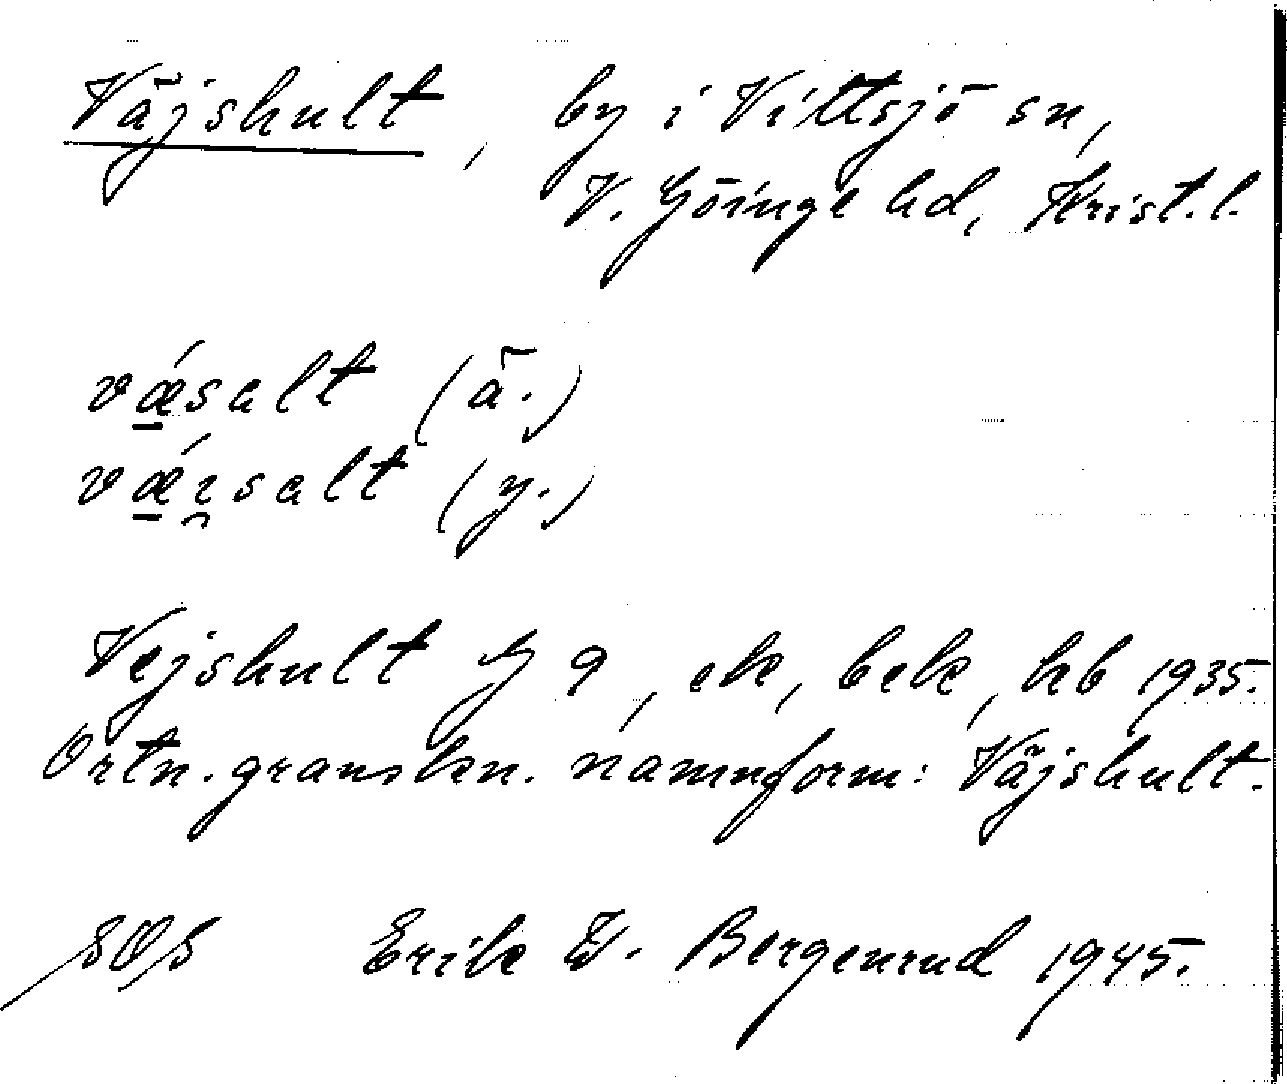 Väjshult, by i Vittsjö sn,
V. Göinge hd, Krist. l.
vǽsalt (ä.)
vǽi̯salt (y.)
Vejshult 9, ek, bek, hb 1935.
Ortn.granskn. namnform: Väjshult.
SOS Erik W. Bergenrud 1945.